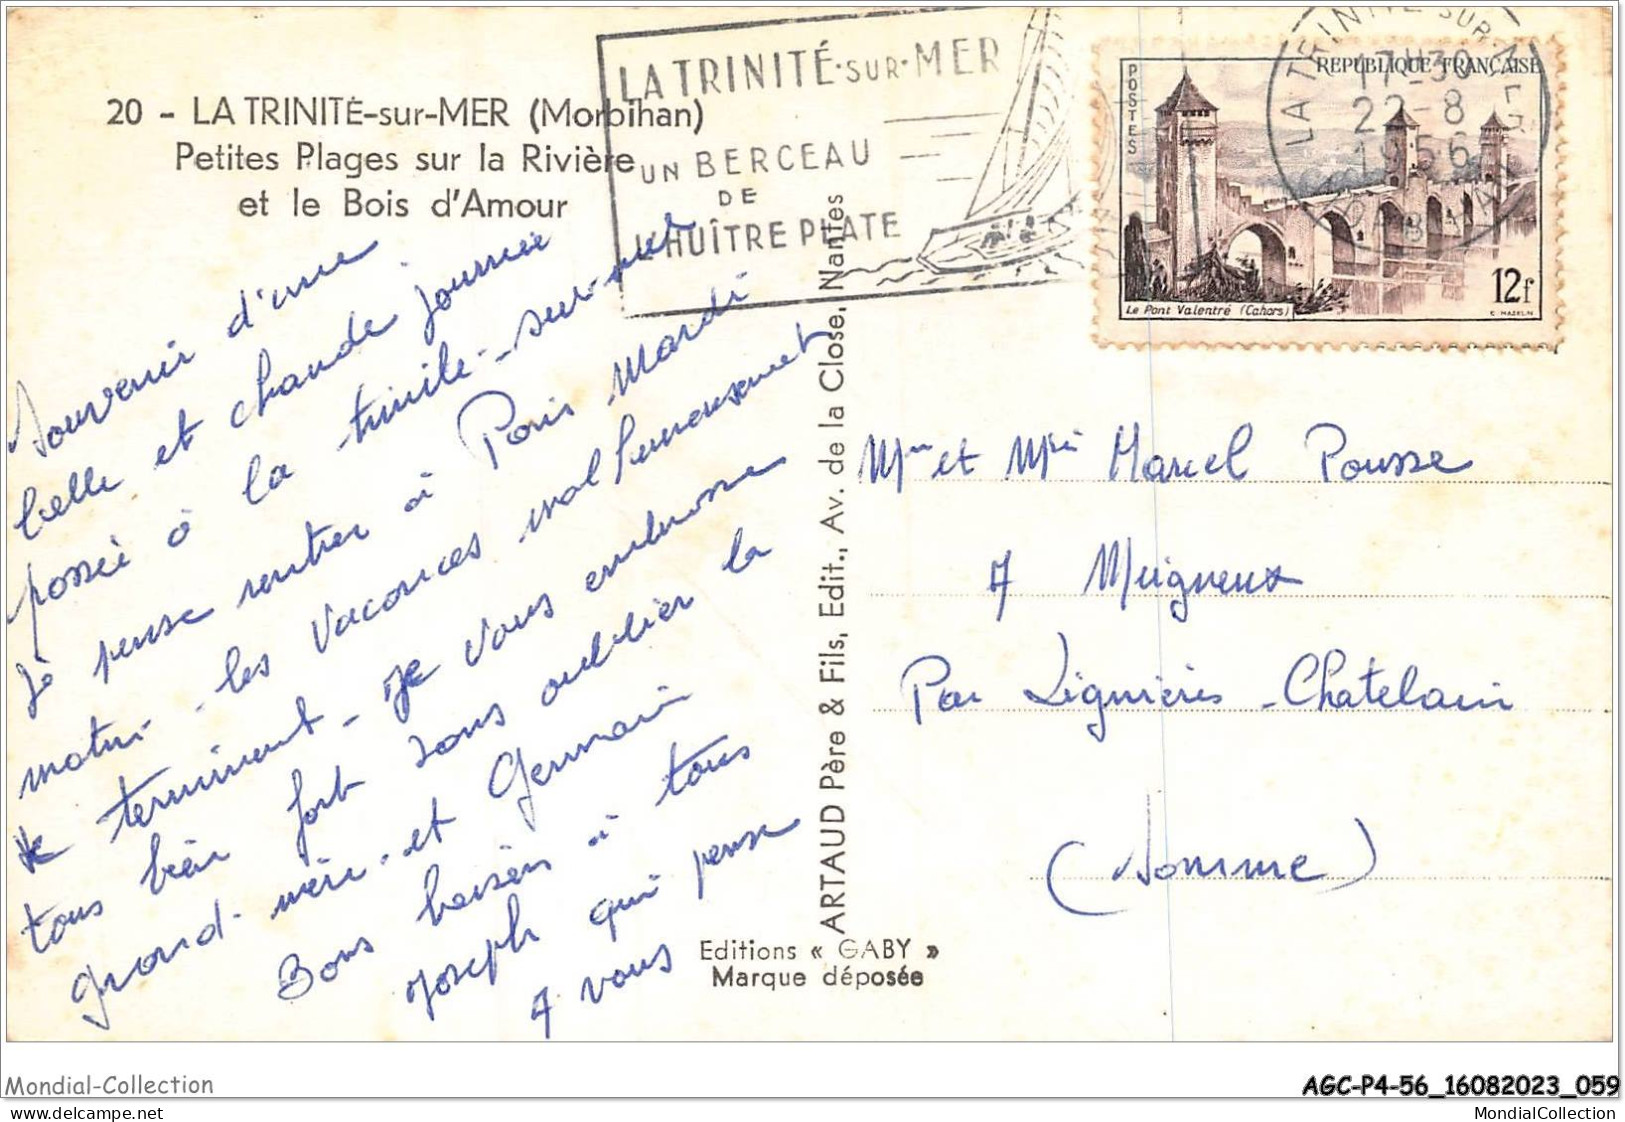 20 - LA TRINITÉ-sur-MER (Morbihan)
Petites Plages sur la Rivière
et le Bois d'Amour
LA TRINITÉ·SUR·MER
UN BERCEAU
DE
L'HUÎTRE PLATE
LA TRINITE SUR MER
17H30
22-8
1956
MORBIHAN
POSTES
REPUBLIQUE FRANÇAISE
12f
Le Pont Valentré (Cahors)
C. MAZELIN
Souvenir d'une
belle et chaude journée
passée à la trinité-sur-mer
Je pense rentrer à Paris Mardi
matin - les vacances malheureusement
se terminent - Je vous embrasse
tous bien fort sans oublier la
grand-mère et Germain
Bons baisers à tous
Joseph qui pense
A vous
ARTAUD Père & Fils, Edit., Av. de la Close, Nantes
Editions « GABY »
Marque déposée
Mr et Mme Marcel Pousse
A Meigneux
Par Lignières-Chatelain
(Somme)
Mondial-Collection
AGC-P4-56_16082023_059
www.delcampe.net
MondialCollection